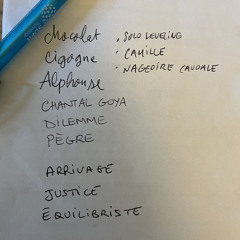 Chocolat
Cigogne
Alphonse
CHANTAL GOYA
DILEMME
PÈGRE
ARRIVAGE
JUSTICE
ÉQUILIBRISTE
· SOLO LEVELING
· CAMILLE
· NAGEOIRE CAUDALE